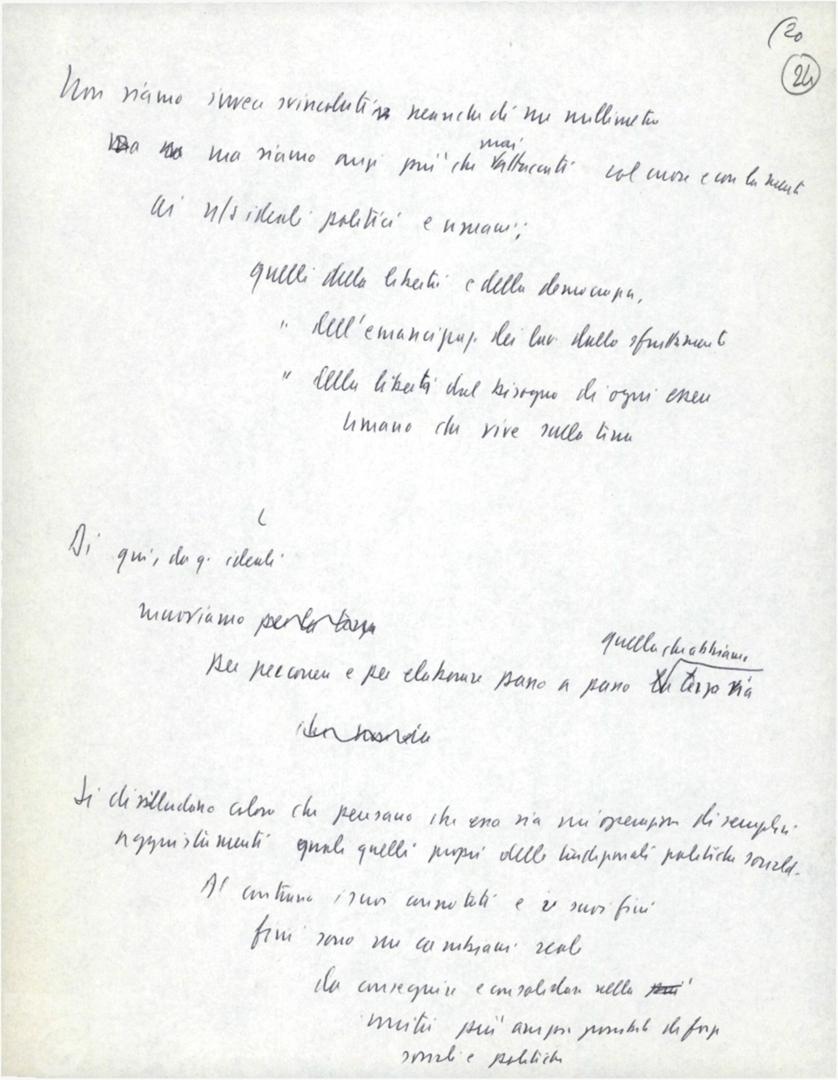 20
24
Non siamo invece svincolati neanche di un millimetro
ma siamo anzi più che mai attaccati col cuore e con la mente
ai n/s ideali politici e umani;
quelli della libertà e della democrazia,
" dell'emancipaz. dei lav. dallo sfruttamento
" della libertà dal bisogno di ogni essere
umano che vive sulla terra
Di qui, da q. ideali
muoviamo per la terza
quella che abbiamo
per percorrere e per elaborare passo a passo la terza via
Si disilludano coloro che pensano che essa sia un'operazione di semplici
aggiustamenti quale quelli propri delle tradizionali politiche sociald.
Al contrario i suoi connotati e i suoi fini
fini sono un cambiam. reale
da conseguire e consolidare nella più
unità più ampia possibile di forze
sociali e politiche